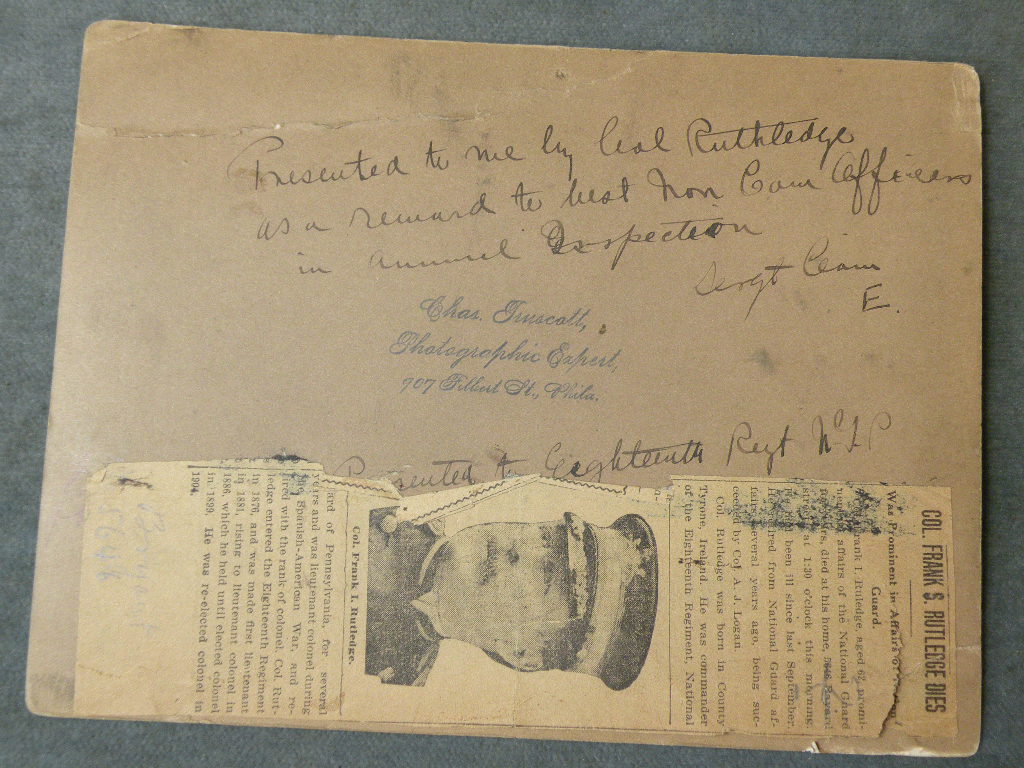 Presented to me by Col Ruthledge
as a reward to best Non Com Officers
in annual Inspection
Sergt Com
E.
Chas. Truscott,
Photographic Expert,
707 Filbert St., Phila.
Presented to Eighteenth Regt N G P
COL. FRANK S. RUTLERGE DIES
Was Prominent in Affairs of
Guard.
rank I. Ruledge, aged 62, promi-
affairs of the National Guard
rs, died at his home,
at 1:30 o'clock this morning.
been ill since last September.
ired from National Guard af-
fairs several years ago, being suc-
ceeded by Col A. J. Logan.
Col. Rutledge was born in County
Tyrone, Ireland. He was commander
of the Eighteenth Regiment, National
Col. Frank I. Rutledge.
ard of Pennsylvania, for several
years and was lieutenant colonel during
the Spanish-American War, and re-
ired with the rank of colonel. Col. Rut-
ledge entered the Eighteenth Regiment
in 1876, and was made first lieutenant
in 1881, rising to lieutenant colonel in
1886, which he held until elected colonel
in 1899. He was re-elected colonel in
1904.